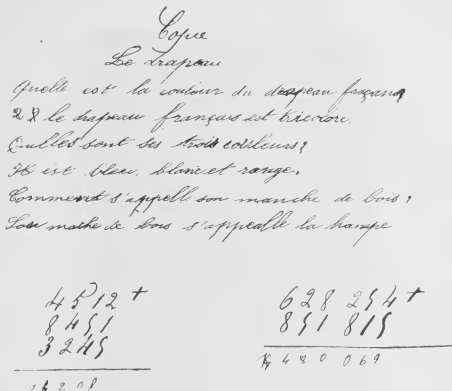 Copie
Le drapeau
Quelle est la couleur du drapeau français
2 R le drapeau français est tricolore.
Quelles sont ses trois coisleurs?
Il est bleu, blanc et rouge.
Comment s'appell son manche de bois?
Son mache de bois s'appealle la hampe
4512 + 628 254 +
8451 851 815
3245 1480 069
16208